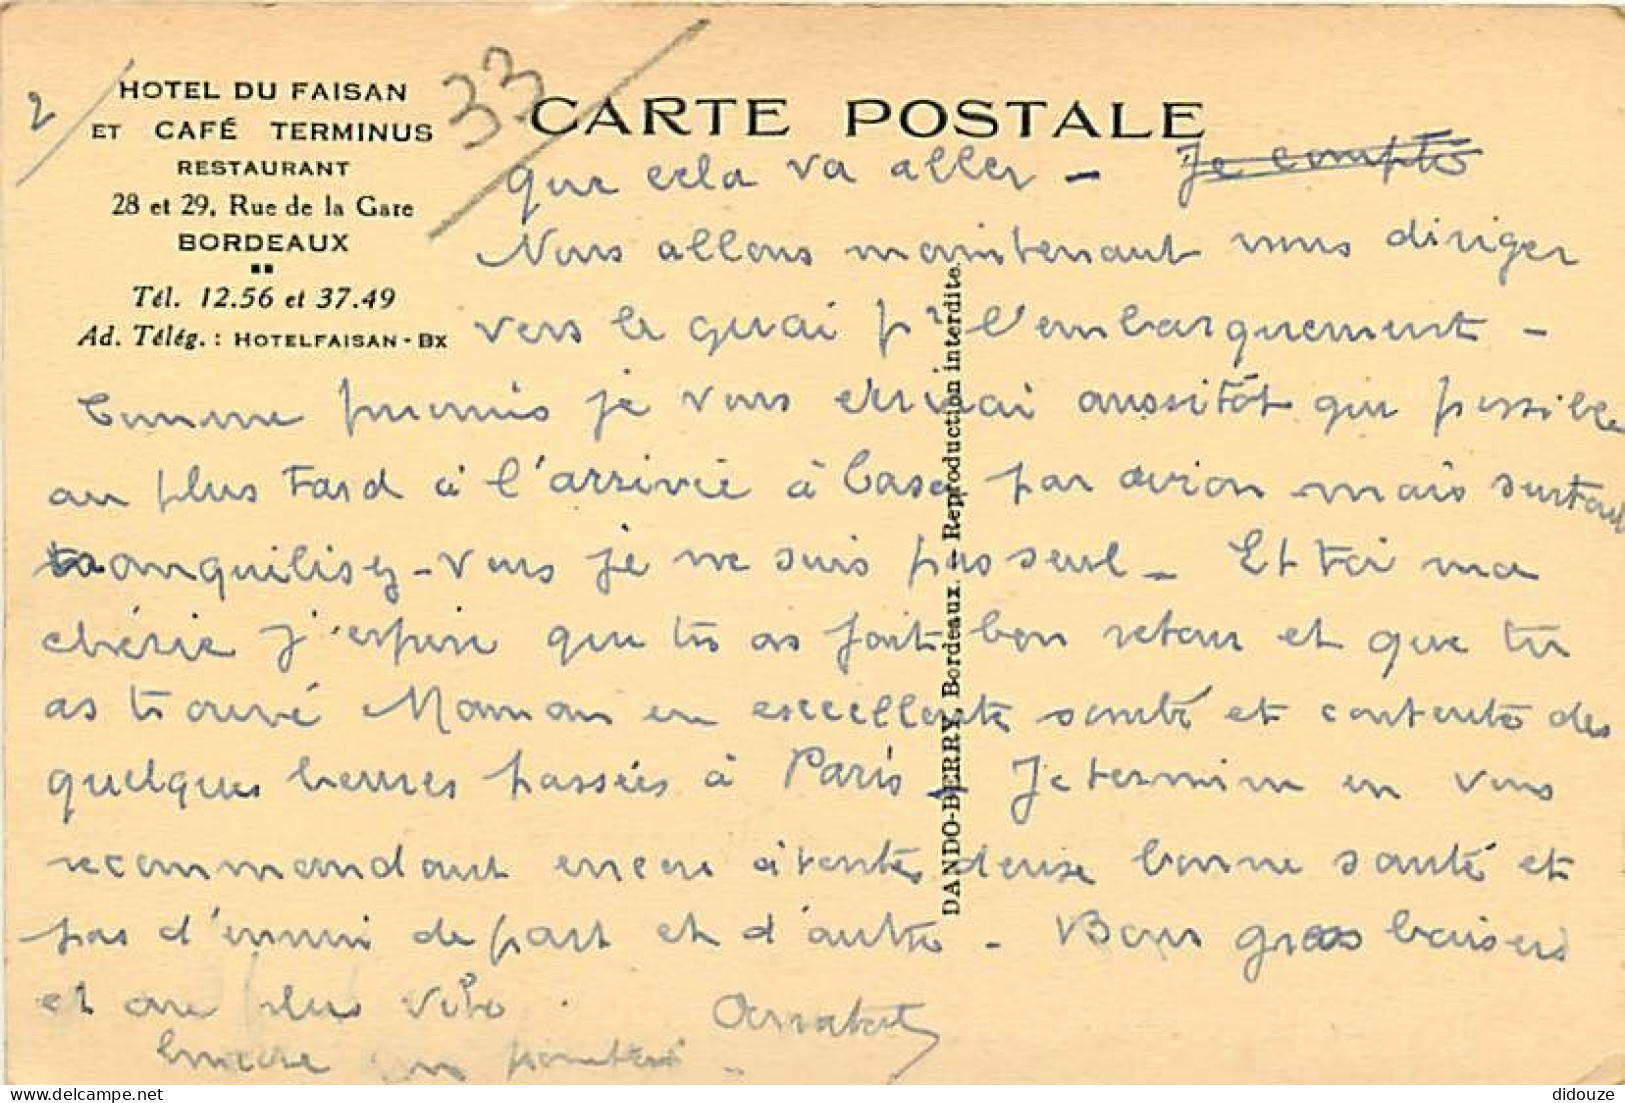 2
33
HOTEL DU FAISAN
ET CAFÉ TERMINUS
RESTAURANT
28 et 29, Rue de la Gare
BORDEAUX
Tél. 12.56 et 37.49
Ad. Télég. : HOTELFAISAN - BX
CARTE POSTALE
que cela va aller - Je compte
Nous allons maintenant nous diriger
vers le quai pr l'embarquement -
Comme promis je vous écrirai aussitôt que possible
au plus tard à l'arrivée à Casa par avion mais surtout
tranquilisez-vous je ne suis pas seul - Et toi ma
chérie j'espère que tu as fait bon retour et que tu
as trouvé Maman en excellente santé et contente des
quelques heures passées à Paris - Je termine en vous
recommandant encore à toutes deux bonne santé et
pas d'ennui de part et d'autre - Bons gros baisers
et au plus vite.
Encore un
DANDO-BERRY, Bordeaux. - Reproduction interdite.
didouze